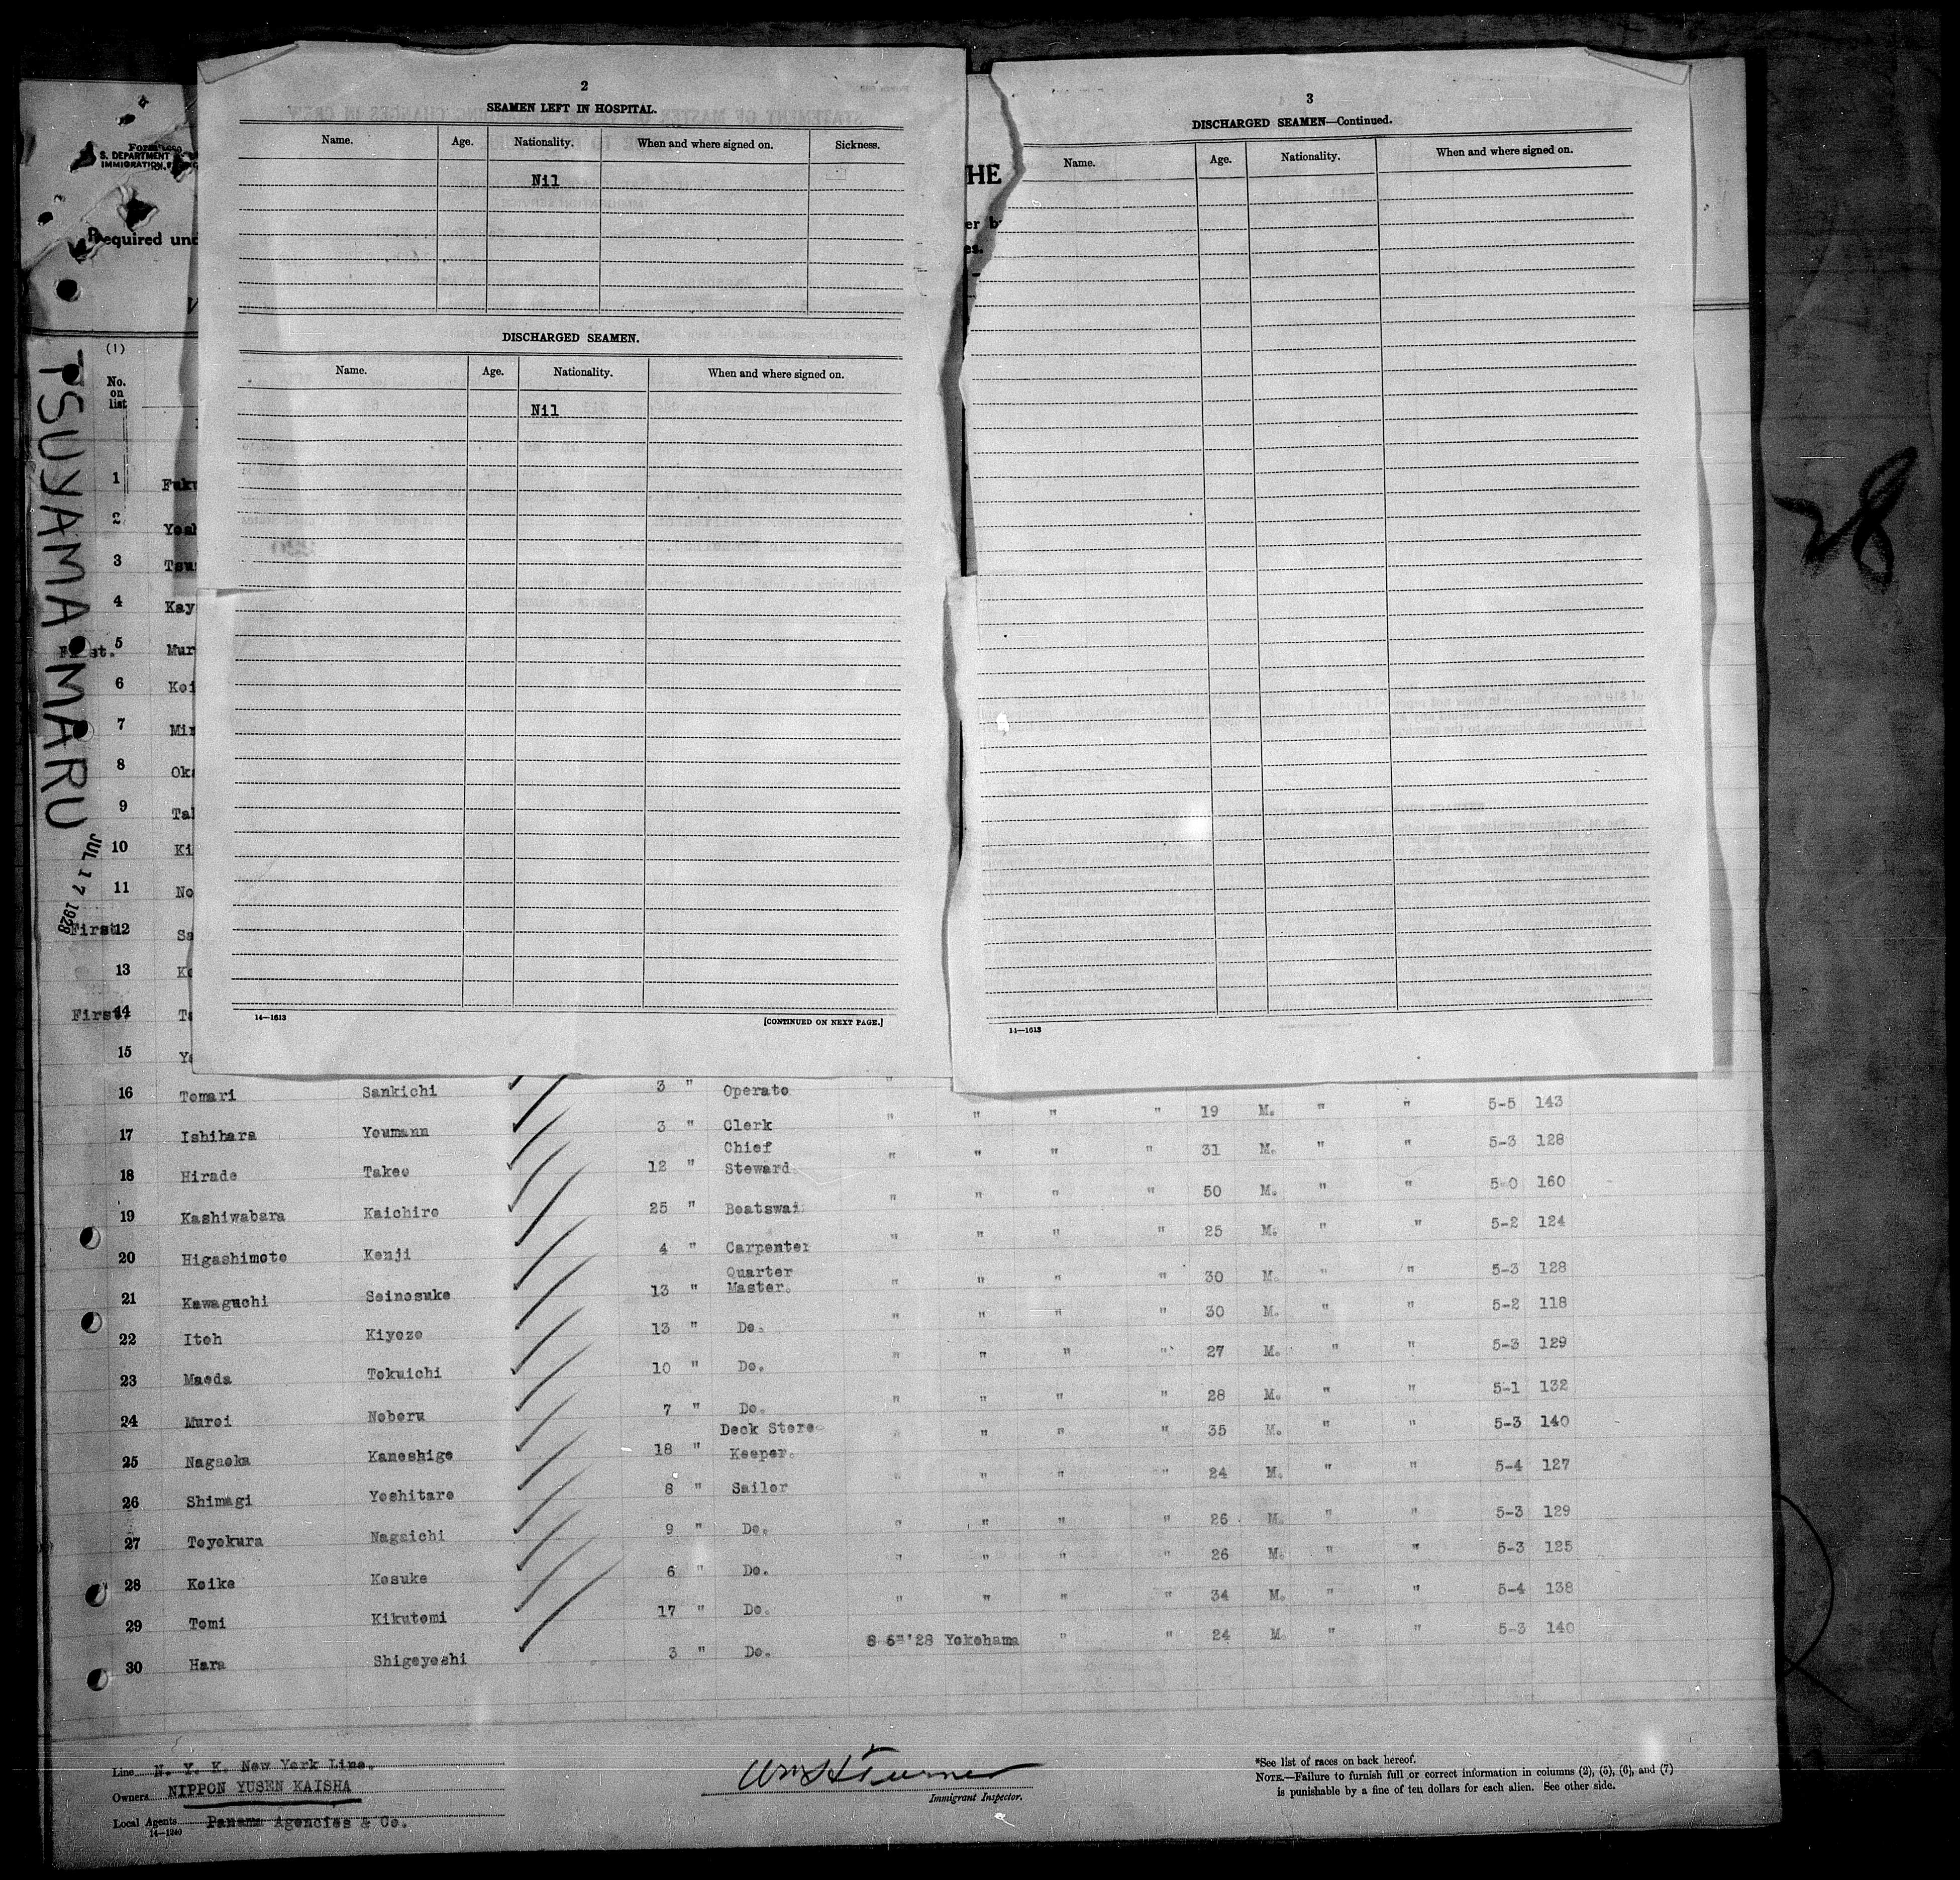 2
SEAMEN LEFT IN HOSPITAL.
Name. Age. Nationality. When and where signed on. Sickness.
Nil
DISCHARGED SEAMEN.
Name. Age. Nationality. When and where signed on.
Nil
14—1613 [CONTINUED ON NEXT PAGE.]
3
DISCHARGED SEAMEN—Continued.
Name. Age. Nationality. When and where signed on.
14—1613
S. DEPARTMENT
IMMIGRATION
Required und
HE
er b
es.
(1)
No.
on
list
TSUYAMA MARU
JUL 17 1928
28
1 Fuku
2 Yosh
3 Tsu
4 Kay
5 Mur
6 Koi
7 Min
8 Oka
9 Tak
10 Ki
11 No
First 12 Sa
13 Ko
First 14 Ta
15 Ya
16 Tomari Sankichi 3 " Operato "
17 Ishihara Youmann 3 " Clerk " " " " 19 M. " " 5-5 143
18 Hirade Takeo 12 " Chief Steward " " " " 31 M. " " 5-3 128
19 Kashiwabara Kaichiro 25 " Boatswai " " " " 50 M. " " 5-0 160
20 Higashimoto Kenji 4 " Carpenter " " " " 25 M. " " 5-2 124
21 Kawaguchi Seinosuke 13 " Quarter Master. " " " " 30 M. " " 5-3 128
22 Itoh Kiyozo 13 " Do. " " " " 30 M. " " 5-2 118
23 Maeda Tokuichi 10 " Do. " " " " 27 M. " " 5-3 129
24 Muroi Noboru 7 " Do. " " " " 28 M. " " 5-1 132
25 Nagaoka Kaneshige 18 " Deck Store Keeper. " " " " 35 M. " " 5-3 140
26 Shimagi Yoshitaro 8 " Sailor " " " " 24 M. " " 5-4 127
27 Toyokura Nagaichi 9 " Do. " " " " 26 M. " " 5-3 129
28 Koike Kosuke 6 " Do. " " " " 26 M. " " 5-3 125
29 Tomi Kikutomi 17 " Do. " " " " 34 M. " " 5-4 138
30 Hara Shigeyoshi 3 " Do. Yokohama " " 24 M. " " 5-3 140
Line N. Y. K. New York Line.
Owners NIPPON YUSEN KAISHA
Local Agents Panama Agencies & Co.
14—1240
Wm H Turner
Immigrant Inspector.
*See list of races on back hereof.
NOTE.—Failure to furnish full or correct information in columns (2), (5), (6), and (7)
is punishable by a fine of ten dollars for each alien. See other side.